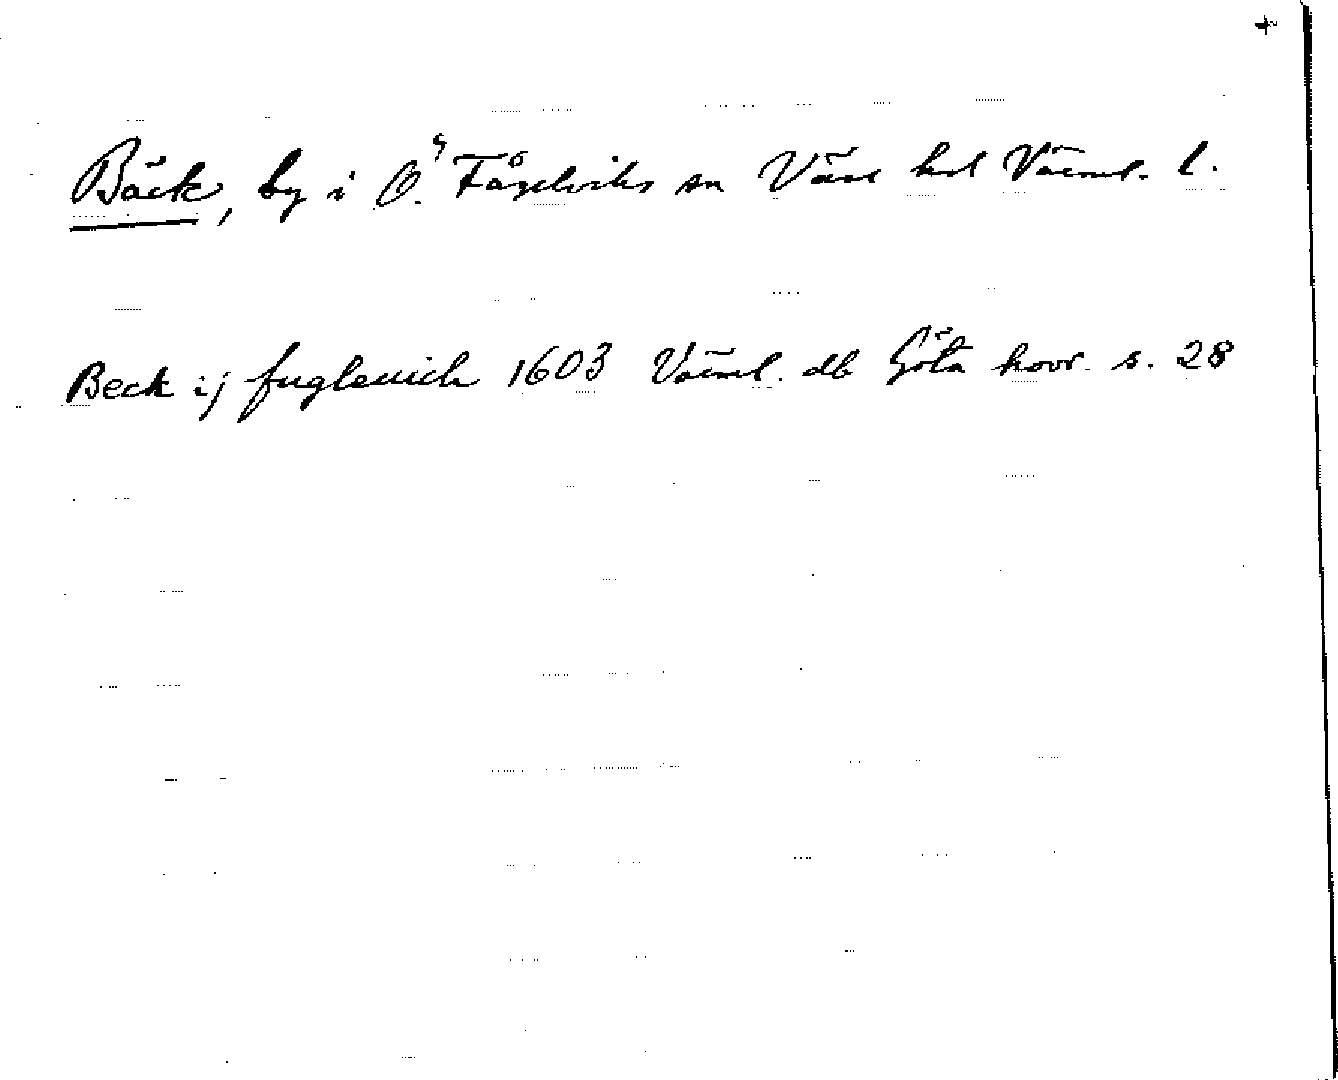 Bäck, by i Ö. Fågelviks sn Väse hd Värml. l.
Beck ij fugleuich 1603 Värml. db Göta hovr. s. 28